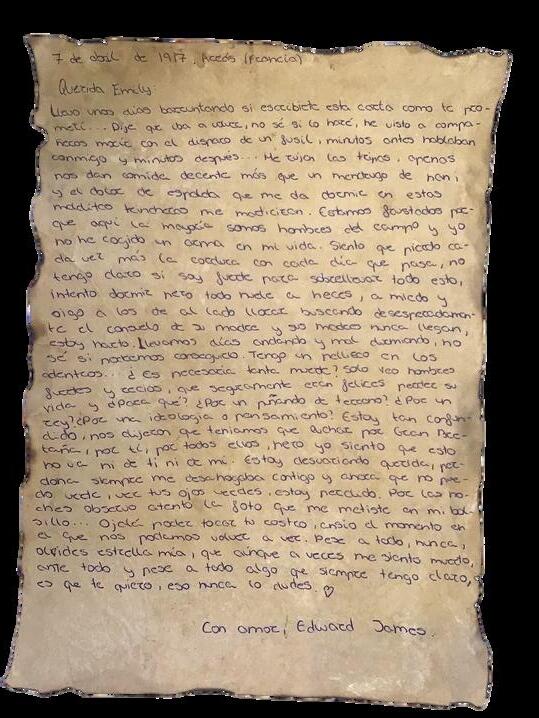 7 de abril de 1917, Arrás (Francia)
Querida Emily:
Llevo unos días barruntando si escribirte esta carta como te pro-
metí... Dije que iba a volver, no sé si lo haré, he visto a compa-
ñeros morir con el disparo de un fusil, minutos antes hablaban
conmigo y minutos después... Me rujen las tripas, apenas
nos dan comida decente más que un mendrugo de pan,
y el dolor de espalda que me da dormir en estas
malditas trincheras me martirizan. Estamos asustados por-
que aquí la mayoría somos hombres del campo y yo
no he cogido un arma en mi vida. Siento que pierdo ca-
da vez más la cordura con cada día que pasa, no
tengo claro si soy fuerte para sobrellevar todo esto,
intento dormir pero todo huele a heces, a miedo y
oigo a los de al lado llorar buscando desesperadamen-
te el consuelo de su madre y sus madres nunca llegan,
estoy harto. Llevamos días andando y mal durmiendo, no
sé si podremos conseguirlo. Tengo un pellizco en los
adentros... ¿Es necesaria tanta muerte? Solo veo hombres
fuertes y recios, que seguramente eran felices perder su
vida y ¿Para qué? ¿Por un puñando de terreno? ¿Por un
rey? ¿Por una ideología o pensamiento? Estoy tan confun-
dido, nos dijeron que teníamos que luchar por Gran Bre-
taña, por tí, por todos ellos, pero yo siento que esto
no va ni de ti ni de mí. Estoy desvariando querida, per-
dona siempre me desahogaba contigo y ahora que no pue-
do verte, ver tus ojos verdes, estoy perdido. Por las no-
ches observo atento la foto que me metiste en mi bol-
sillo... Ojalá poder tocar tu rostro, ansio el momento en
el que nos podamos volver a ver. Pese a todo, nunca,
olvides estrella mía, que aúnque a veces me siento muerto,
ante todo y pese a todo algo que siempre tengo claro,
es que te quiero, eso nunca lo dudes. ♡
Con amor, Edward James.